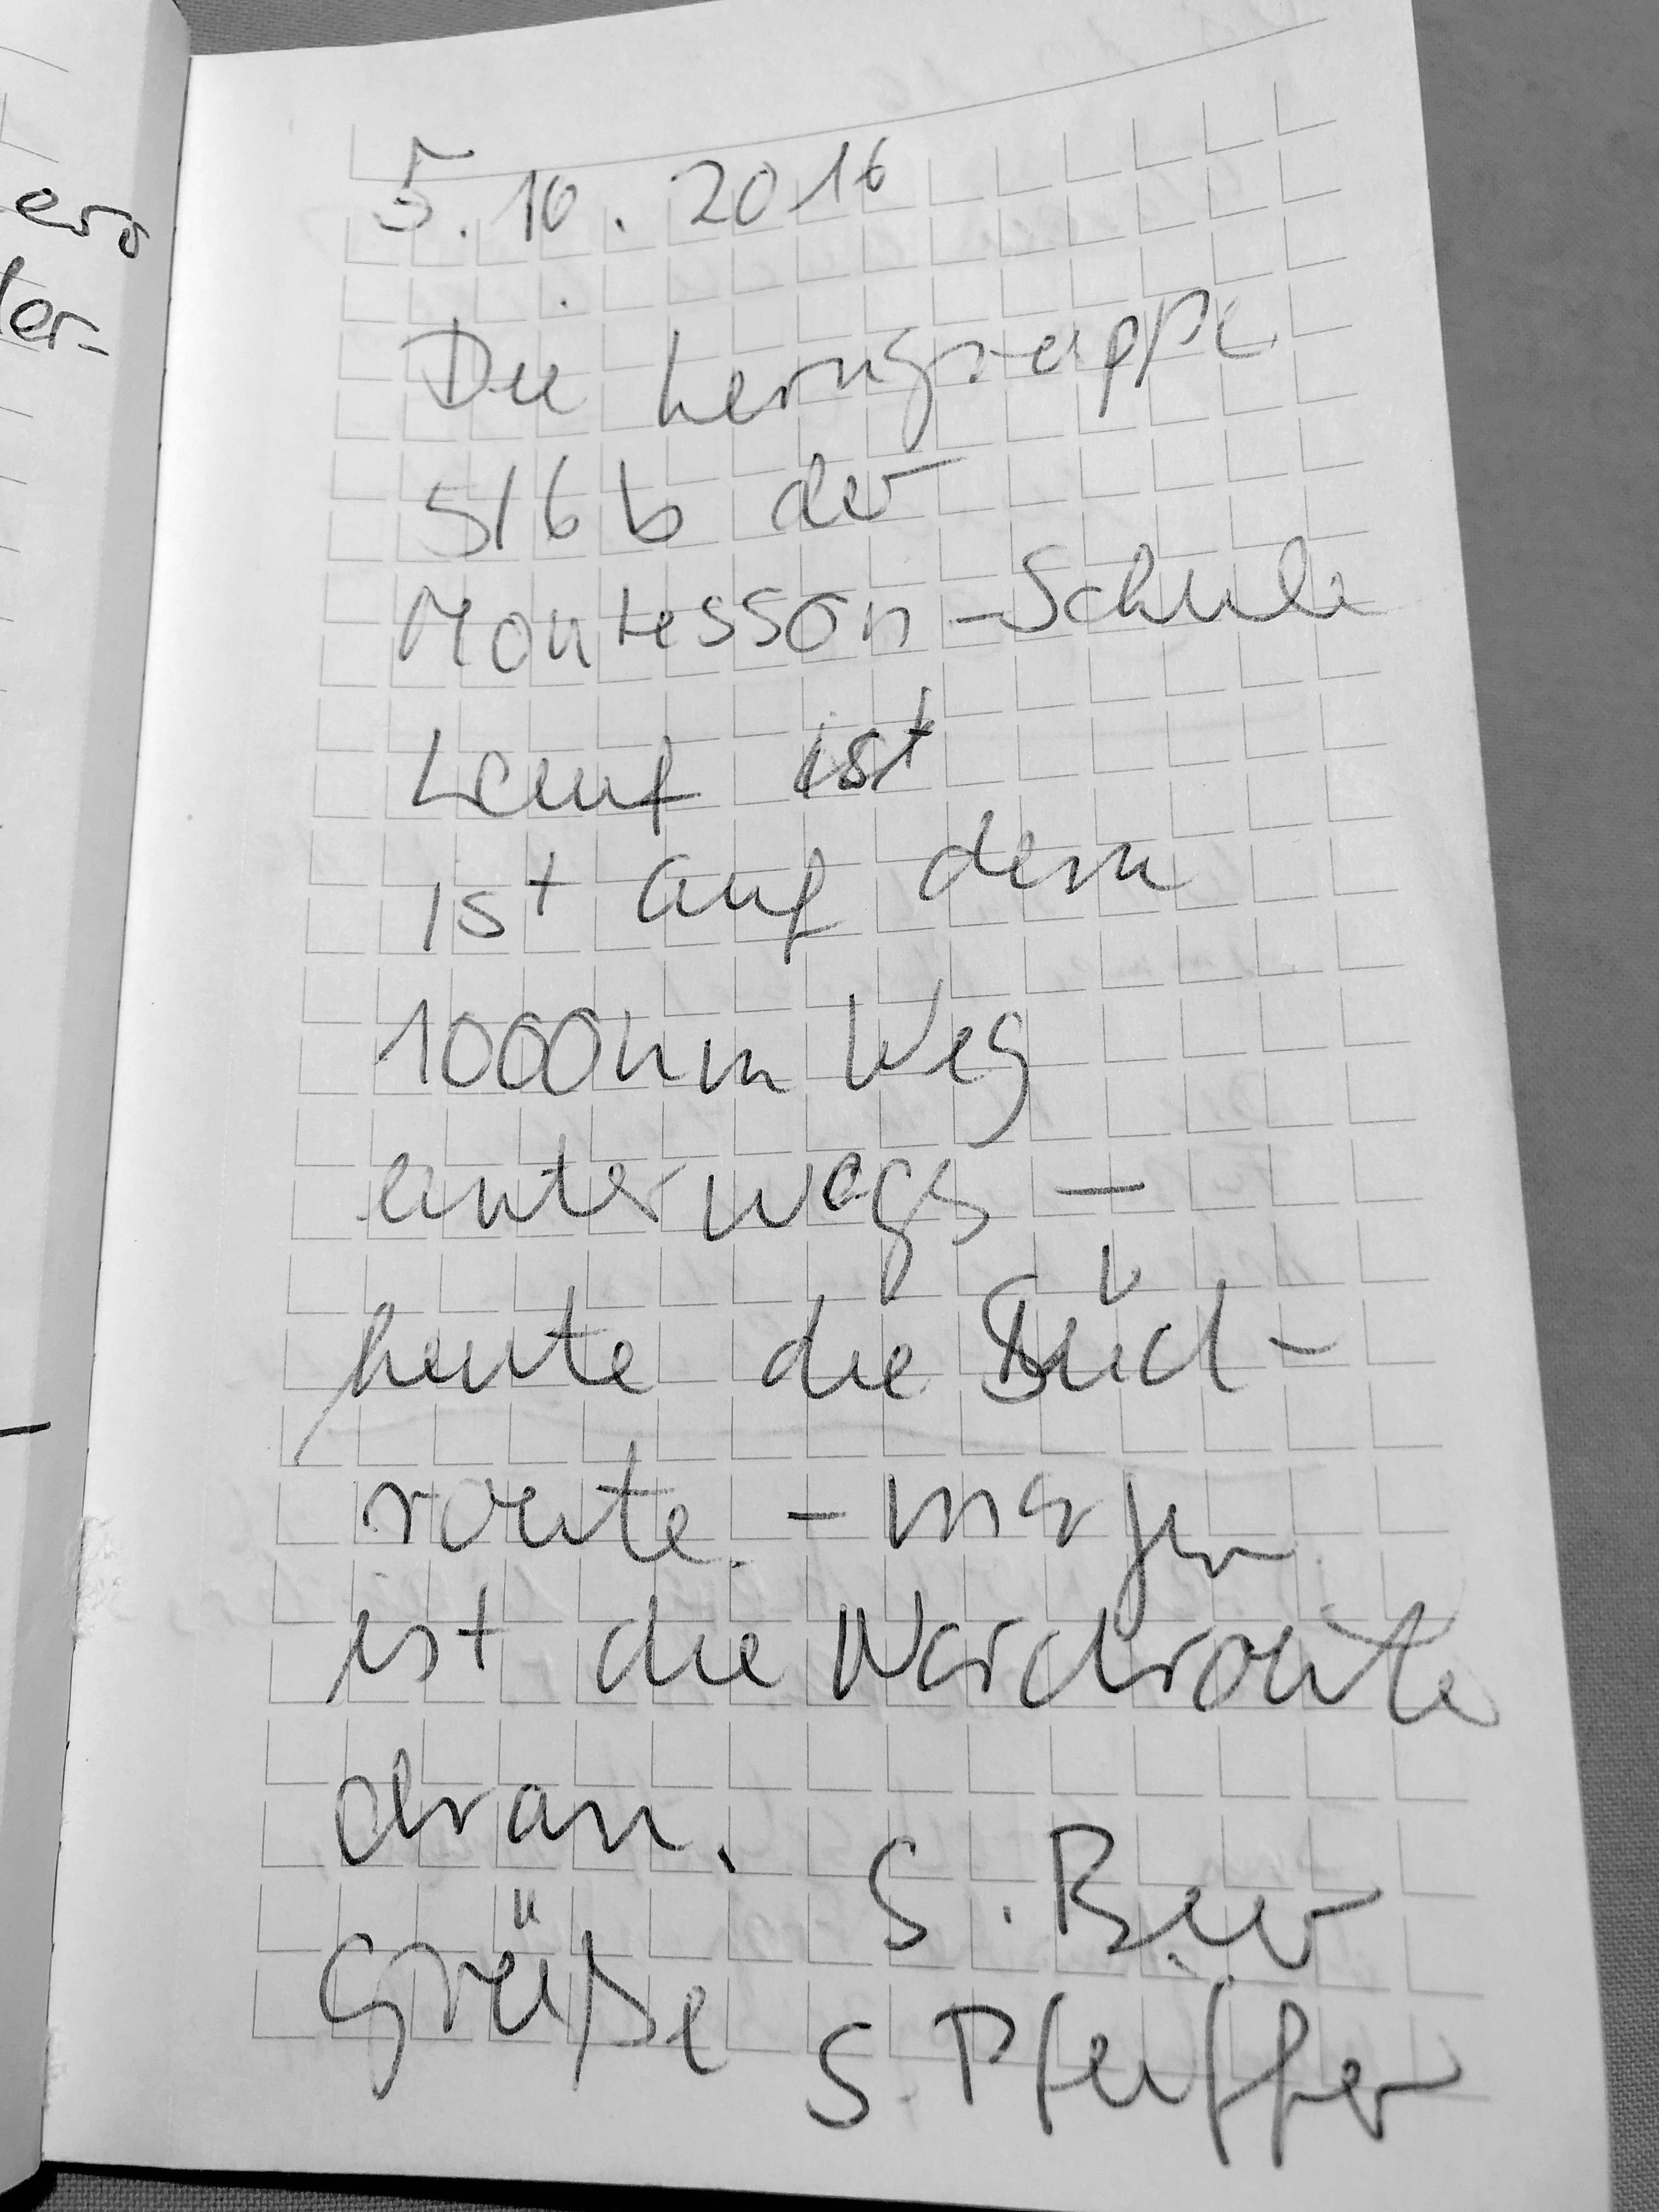 ero
ler-
5.10.2016
Die Lerngruppe
5/6 b der
Montessori-Schule
Lauf ist
ist auf dem
1000 hm Weg
unterwegs –
heute die Süd-
route. – morgen
ist die Nordroute
dran.
S. Beer
Grüße
S. Pfeiffer